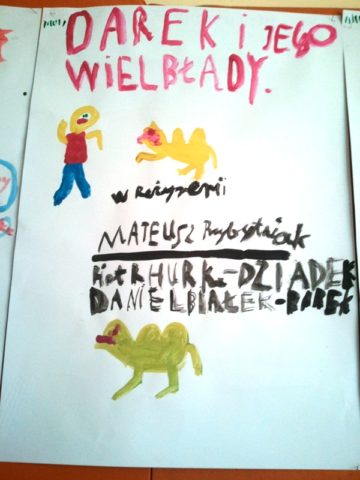 DAREK i JEGO
WIELBŁĄDY.
W Reżyserii
MATEUSZ
Piotr HURK.-DZIADEK
DANIEL BIAŁEK-BOREK